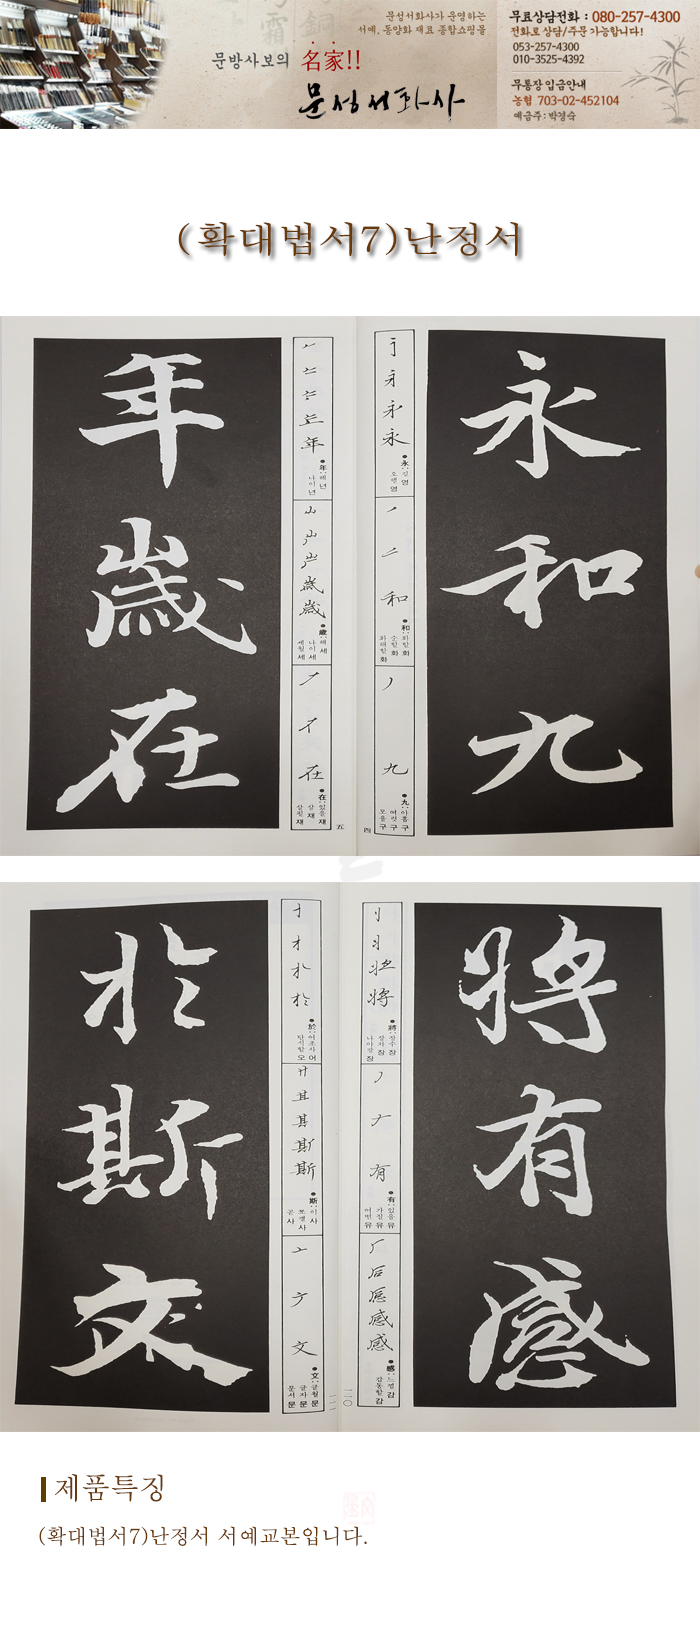 문방사보의 名家!!
문성서화사가 운영하는
서예, 동양화 재료 종합쇼핑몰
문성서화사
무료상담전화 : 080-257-4300
전화로 상담/주문 가능합니다!
053-257-4300
010-3525-4392
무통장 입금안내
농협 703-02-452104
예금주 : 박경숙
(확대법서7)난정서
永
和
九
永
永:길 영
오랠 영
和
和:화할 화
순할 화
화해할 화
九
九:아홉 구
여럿 구
모을 구
四
年
年:해 년
나이 년
歲
歲:해 세
나이 세
세월 세
在
在:있을 재
살 재
살필 재
五
年
歲
在
將
有
感
將
將:장수 장
장차 장
나아갈 장
有
有:있을 유
가질 유
어떤 유
感
感:느낄 감
감동할 감
二〇
於
於:어조사 어
탄식할 오
斯
斯:이 사
쪼갤 사
곧 사
文
文:글월 문
글자 문
문서 문
於
斯
文
제품특징
(확대법서7)난정서 서예교본입니다.